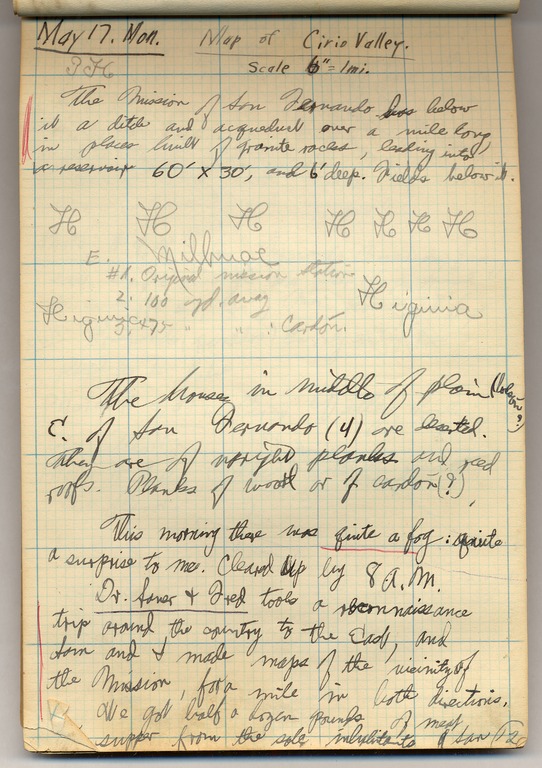 May 17. Mon. Map of Cirio Valley.
Scale 6" = 1 mi.
The Mission of San Fernando has below
it a ditch and acqueduct over a mile long,
in places built of granite rocks, leading into
a reservoir 60' x 30', and 6' deep. Fields below it.
H H H H H H H
E.
#1. Original mission station
2. 100 yd. away
Higinia
3. 475 " " : Cardón.
Higinia
The houses in middle of plain
E. of San Fernando (4) are deserted.
They are of upright planks and reed
roofs. Planks of wood or of cardón (?)
This morning there was quite a fog: quite
a surprise to me. Cleared up by 8 A.M.
Dr. & Fred took a reconnaissance
trip around the country to the East, and
Sam and I made maps of the vicinity of
the Mission, for a mile in both directions.
We got half a dozen pounds of meat
supper from the sole inhabitants of San